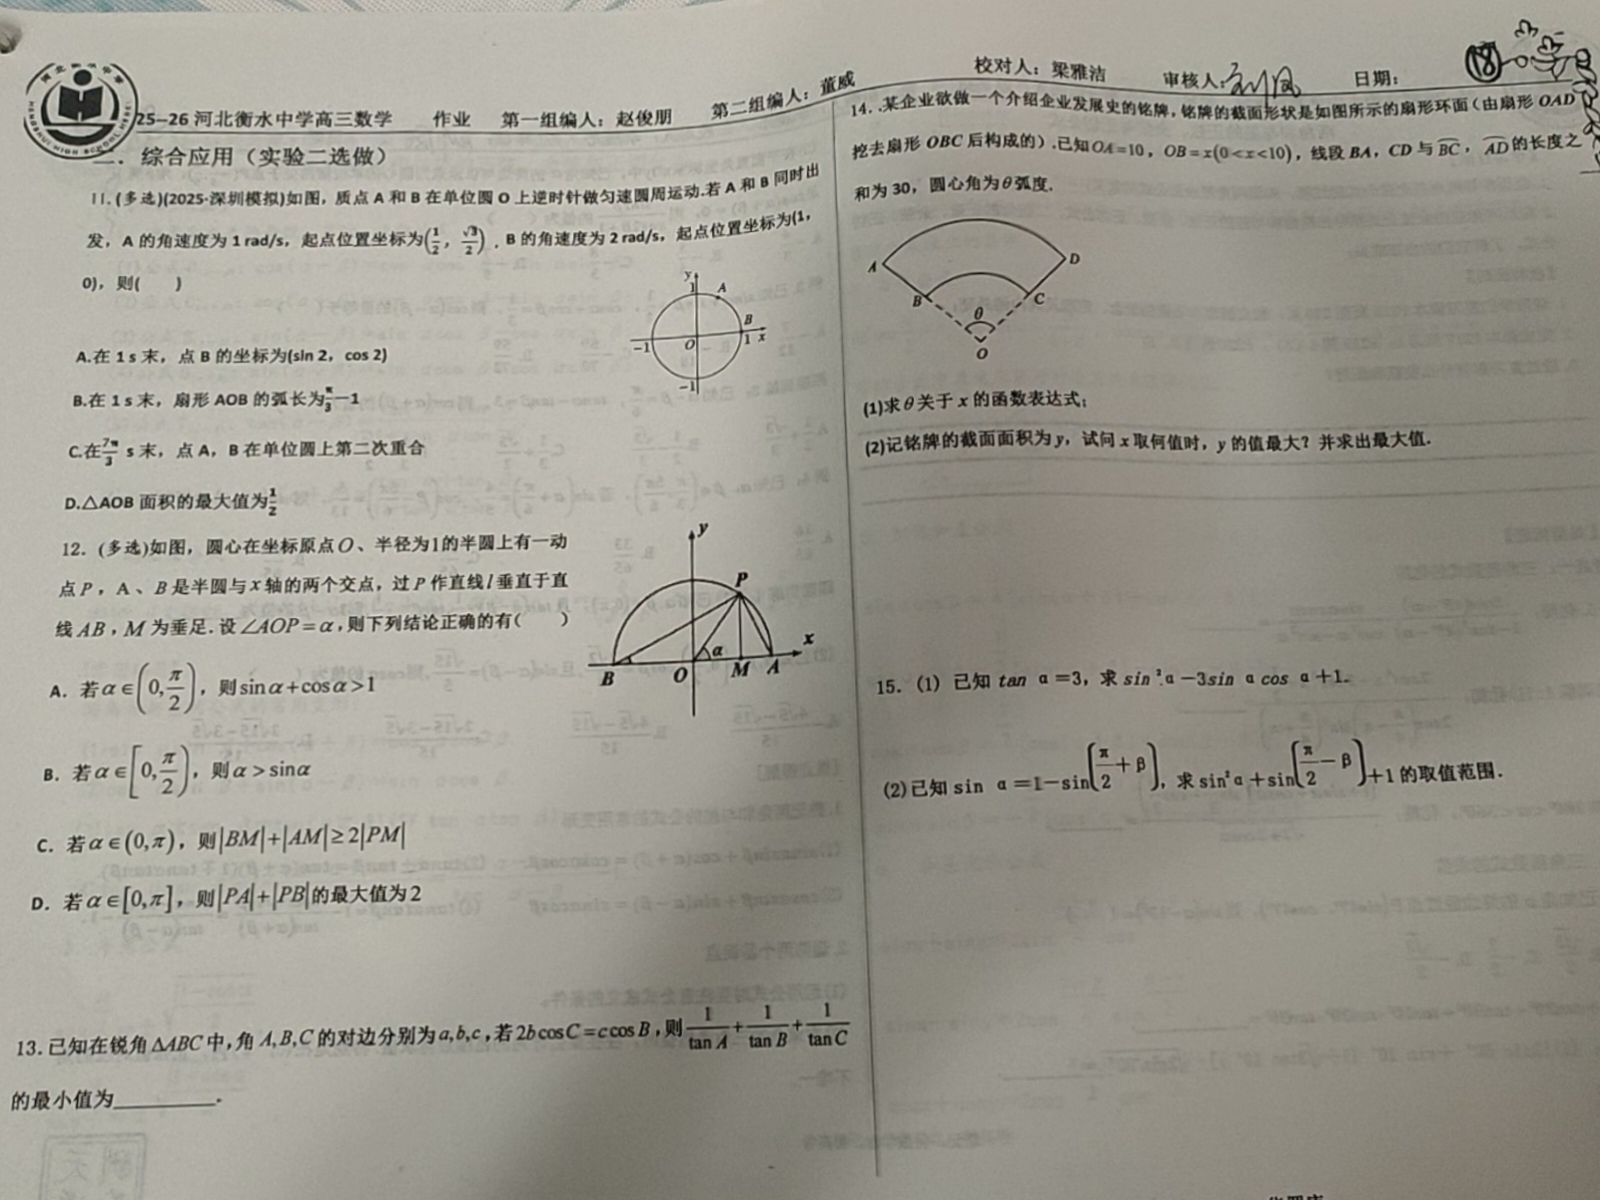 25-26 河北衡水中学高三数学 作业 第一组编人：赵俊朋 第二组编人：董威 校对人：梁雅洁 审核人： 日期：
18
二．综合应用（实验二选做）
11.(多选)(2025·深圳模拟)如图，质点 A 和 B 在单位圆 O 上逆时针做匀速圆周运动.若 A 和 B 同时出
发，A 的角速度为 1 rad/s，起点位置坐标为(1/2，√3/2)，B 的角速度为 2 rad/s，起点位置坐标为(1，
0)，则( )
y
1
A
B
-1
O
1
x
-1
A.在 1 s 末，点 B 的坐标为(sin 2，cos 2)
B.在 1 s 末，扇形 AOB 的弧长为π/3－1
C.在7π/3 s 末，点 A，B 在单位圆上第二次重合
D.△AOB 面积的最大值为1/2
12．(多选)如图，圆心在坐标原点O、半径为1的半圆上有一动
点P，A、B是半圆与x轴的两个交点，过P作直线l垂直于直
线AB，M为垂足．设∠AOP=α,则下列结论正确的有( )
y
P
x
α
B
O
M
A
A．若α∈(0,π/2)，则sinα+cosα>1
B．若α∈[0,π/2)，则α>sinα
C．若α∈(0,π)，则|BM|+|AM|≥2|PM|
D．若α∈[0,π]，则|PA|+|PB|的最大值为2
13.已知在锐角△ABC中,角A,B,C的对边分别为a,b,c,若2bcosC=ccosB,则1/tanA+1/tanB+1/tanC
的最小值为________.
14. .某企业欲做一个介绍企业发展史的铭牌，铭牌的截面形状是如图所示的扇形环面（由扇形OAD
挖去扇形OBC后构成的）.已知OA=10，OB=x(0<x<10)，线段BA，CD与BC，AD的长度之
和为30，圆心角为θ弧度.
A
D
B
C
θ
O
(1)求θ关于x的函数表达式；
(2)记铭牌的截面面积为y，试问x取何值时，y的值最大？并求出最大值.
15.（1）已知 tan α=3，求 sin²α-3sin αcos α+1.
(2)已知 sin α=1-sin(π/2+β)，求 sin²α+sin(π/2-β)+1 的取值范围.